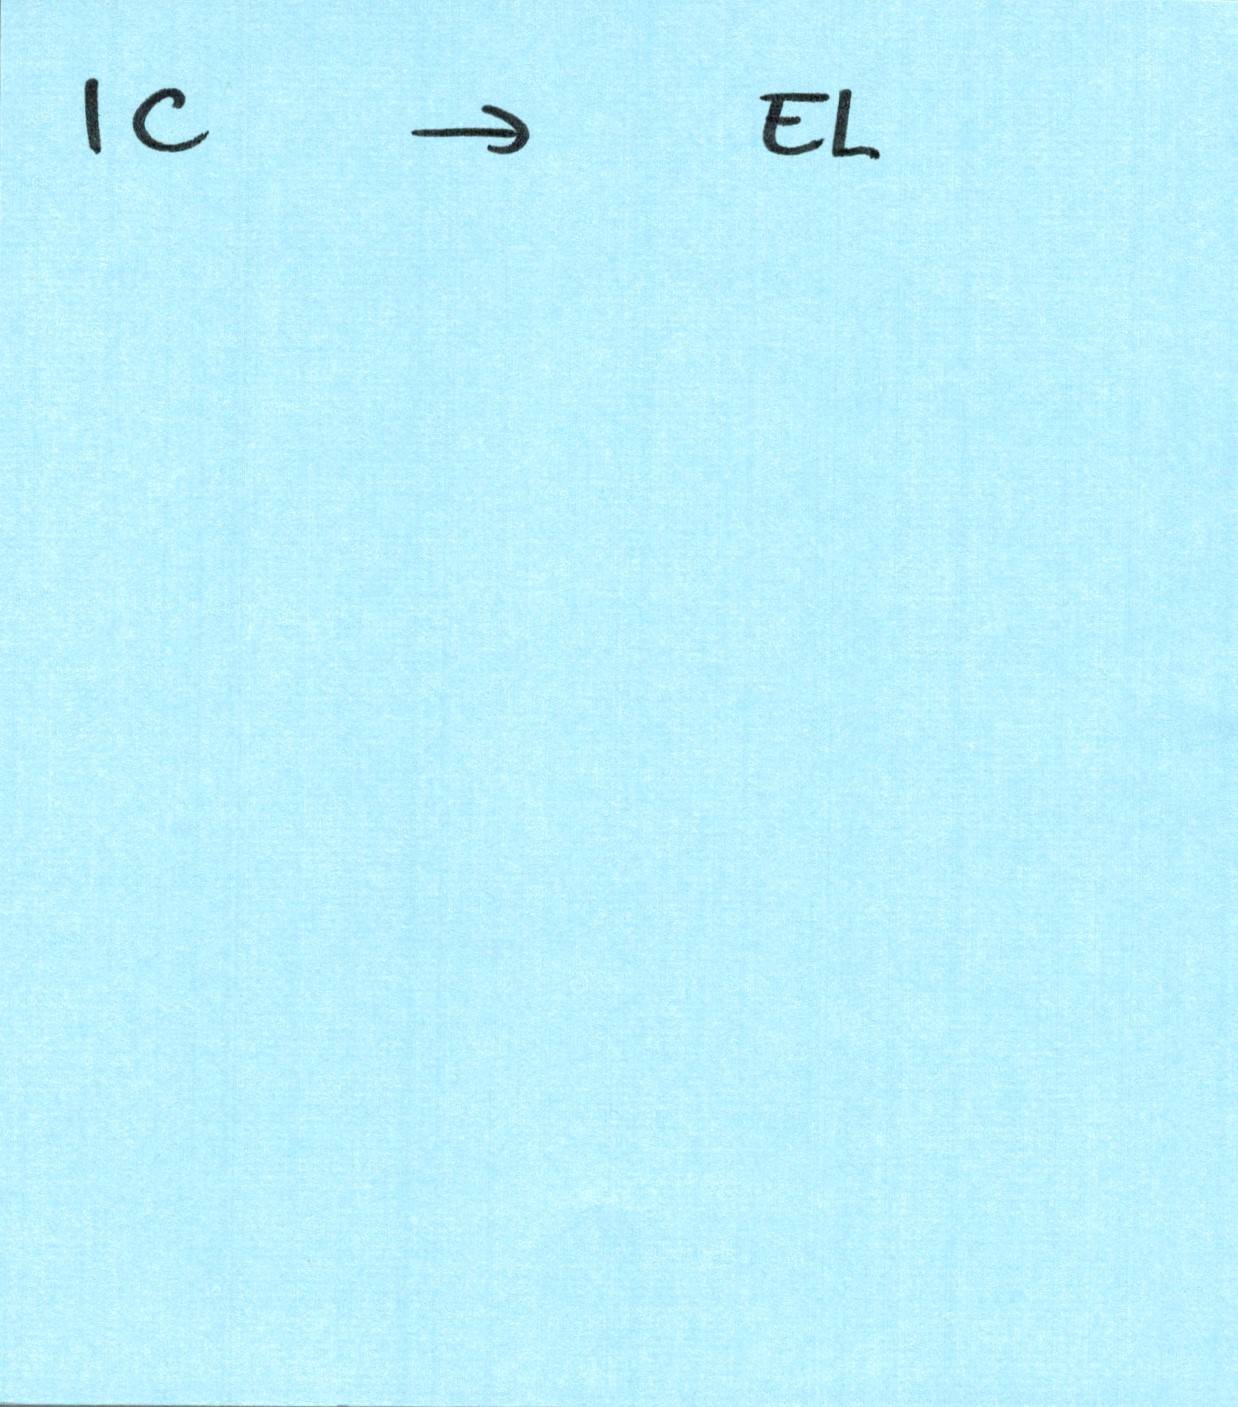 IC → EL